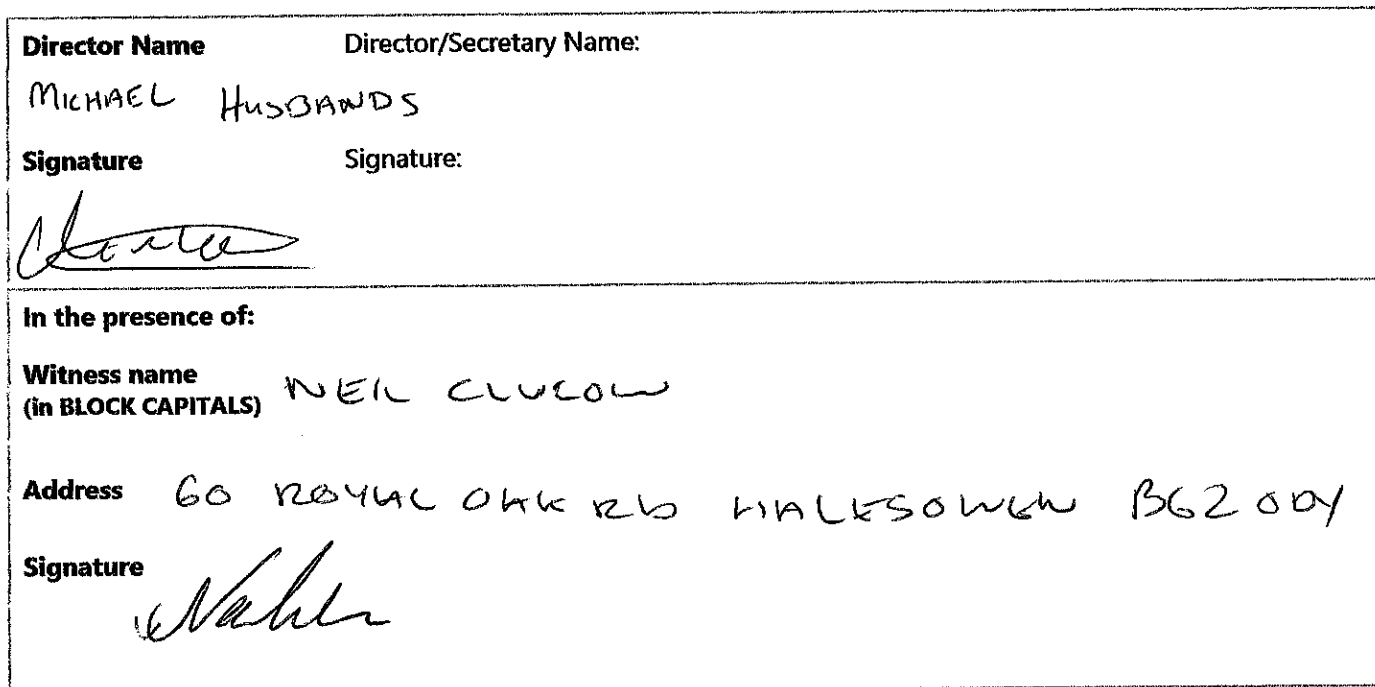 Director Name Director/Secretary Name:
MICHAEL HUSBANDS
Signature Signature:
In the presence of:
Witness name
(in BLOCK CAPITALS) NEIL
Address 60 ROYAL OAK RD HALESOWEN B62 0DY
Signature